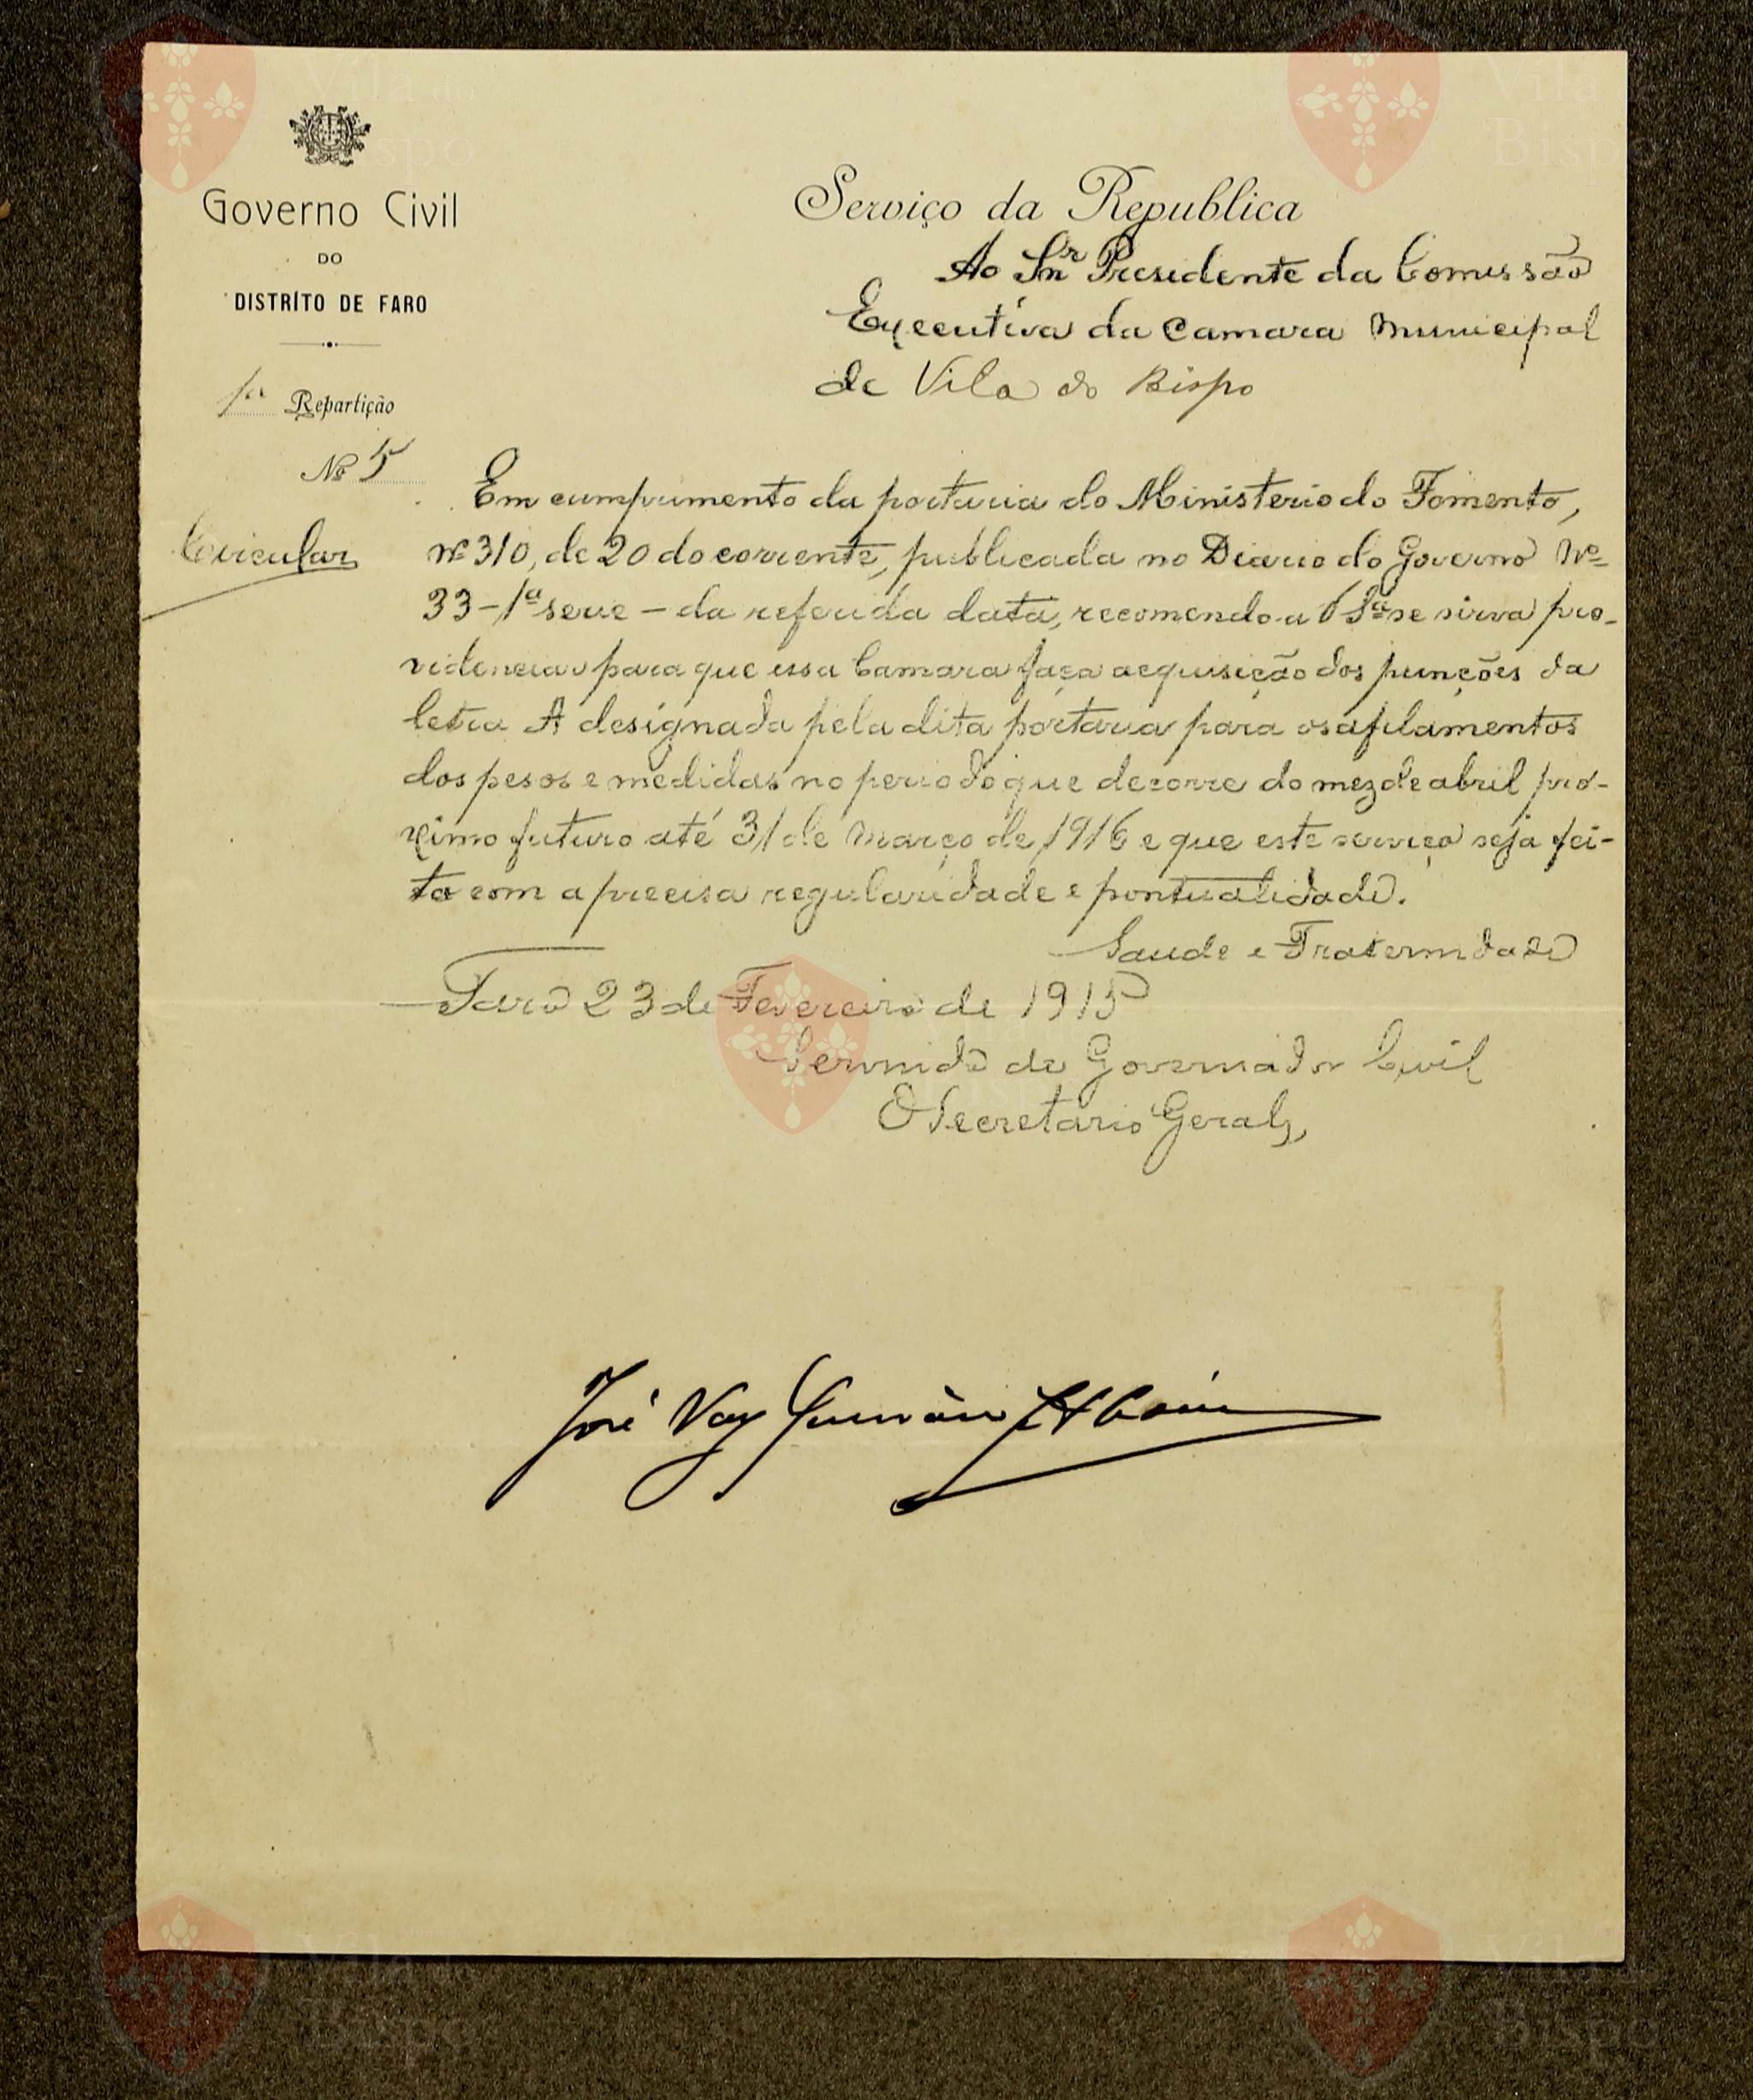 Governo Civil
DO
DISTRÍTO DE FARO
1ª Repartição
Nº 5
Circular
Serviço da Republica
Ao Snr Presidente da Comissão
Executiva da Camara Municipal
de Vila do Bispo
Em cumprimento da portaria do Ministerio do Fomento,
nº 310, de 20 do corrente, publicada no Diario do Governo Nº
33-1ª serie - da referida data, recomendo a V Sª se sirva pro-
videnciar para que essa Camara faça acquisição dos punções da
letra A designada pela dita portaria para os afilamentos
dos pesos e medidas no periodo que decorre do mez de abril pró-
ximo futuro até 31 de Março de 1916 e que este serviço seja fei-
to com a precisa regularidade e pontualidade.
Saude e Fraternidade
Faro 23 de Fevereiro de 1915
Servindo de Governador Civil
O Secretario Geral,
José Vaz
Vila do
Bispo
Vila
Bispo
Vila do
Bispo
Vila
Bispo